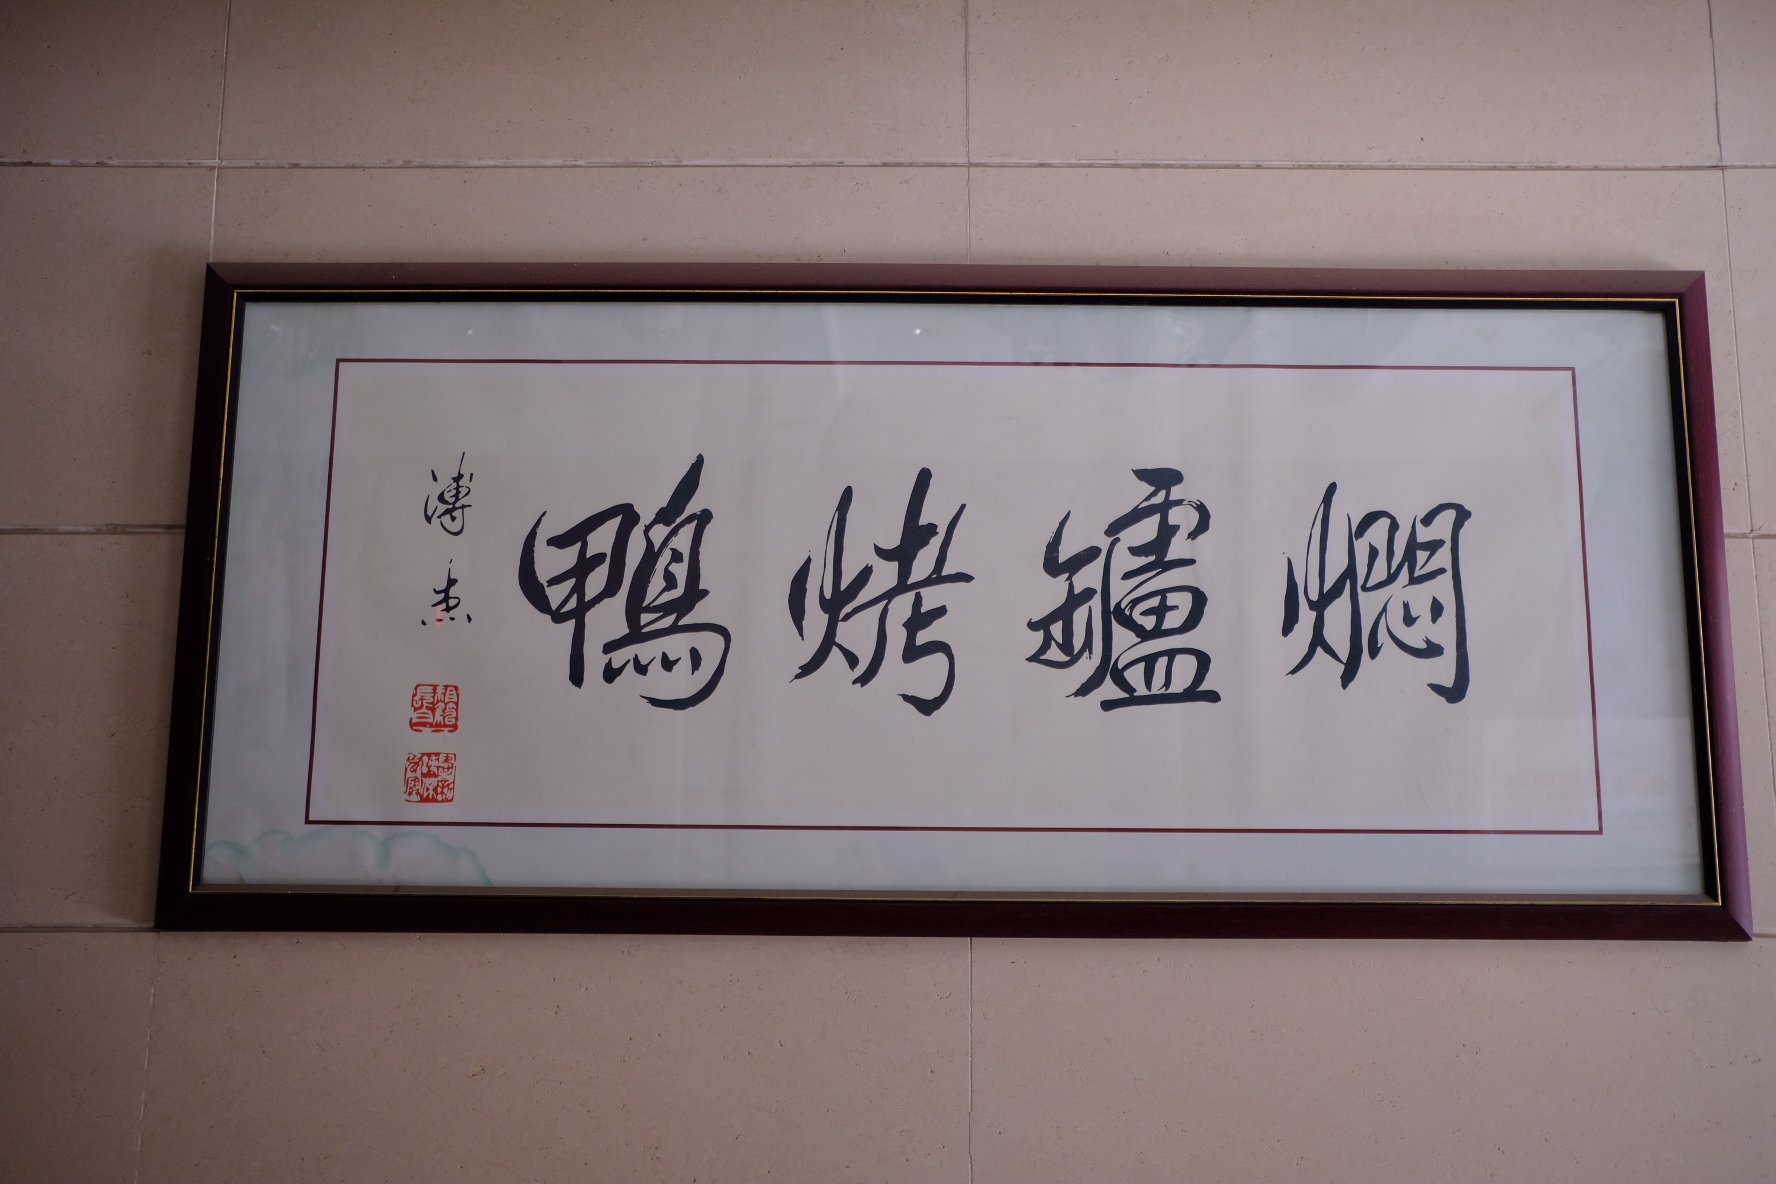 燜罏烤鴨
溥杰